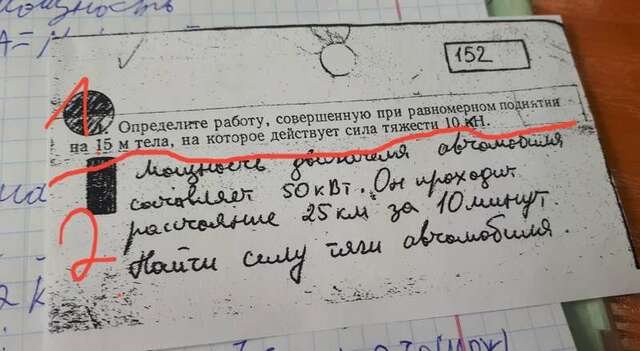 мощность
A=
152
1
Определите работу, совершенную при равномерном поднятии
на 15 м тела, на которое действует сила тяжести 10 кН.
2
Мощность двигателя автомобиля
составляет 50 кВт. Он проходит
расстояние 25 км за 10 минут.
Найти силу тяги автомобиля.